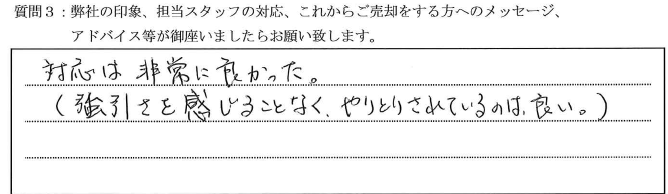 質問３：弊社の印象、担当スタッフの対応、これからご売却をする方へのメッセージ、
アドバイス等が御座いましたらお願い致します。
対応は非常に良かった。
(強引さを感じることなく、やりとりされているのは、良い。)